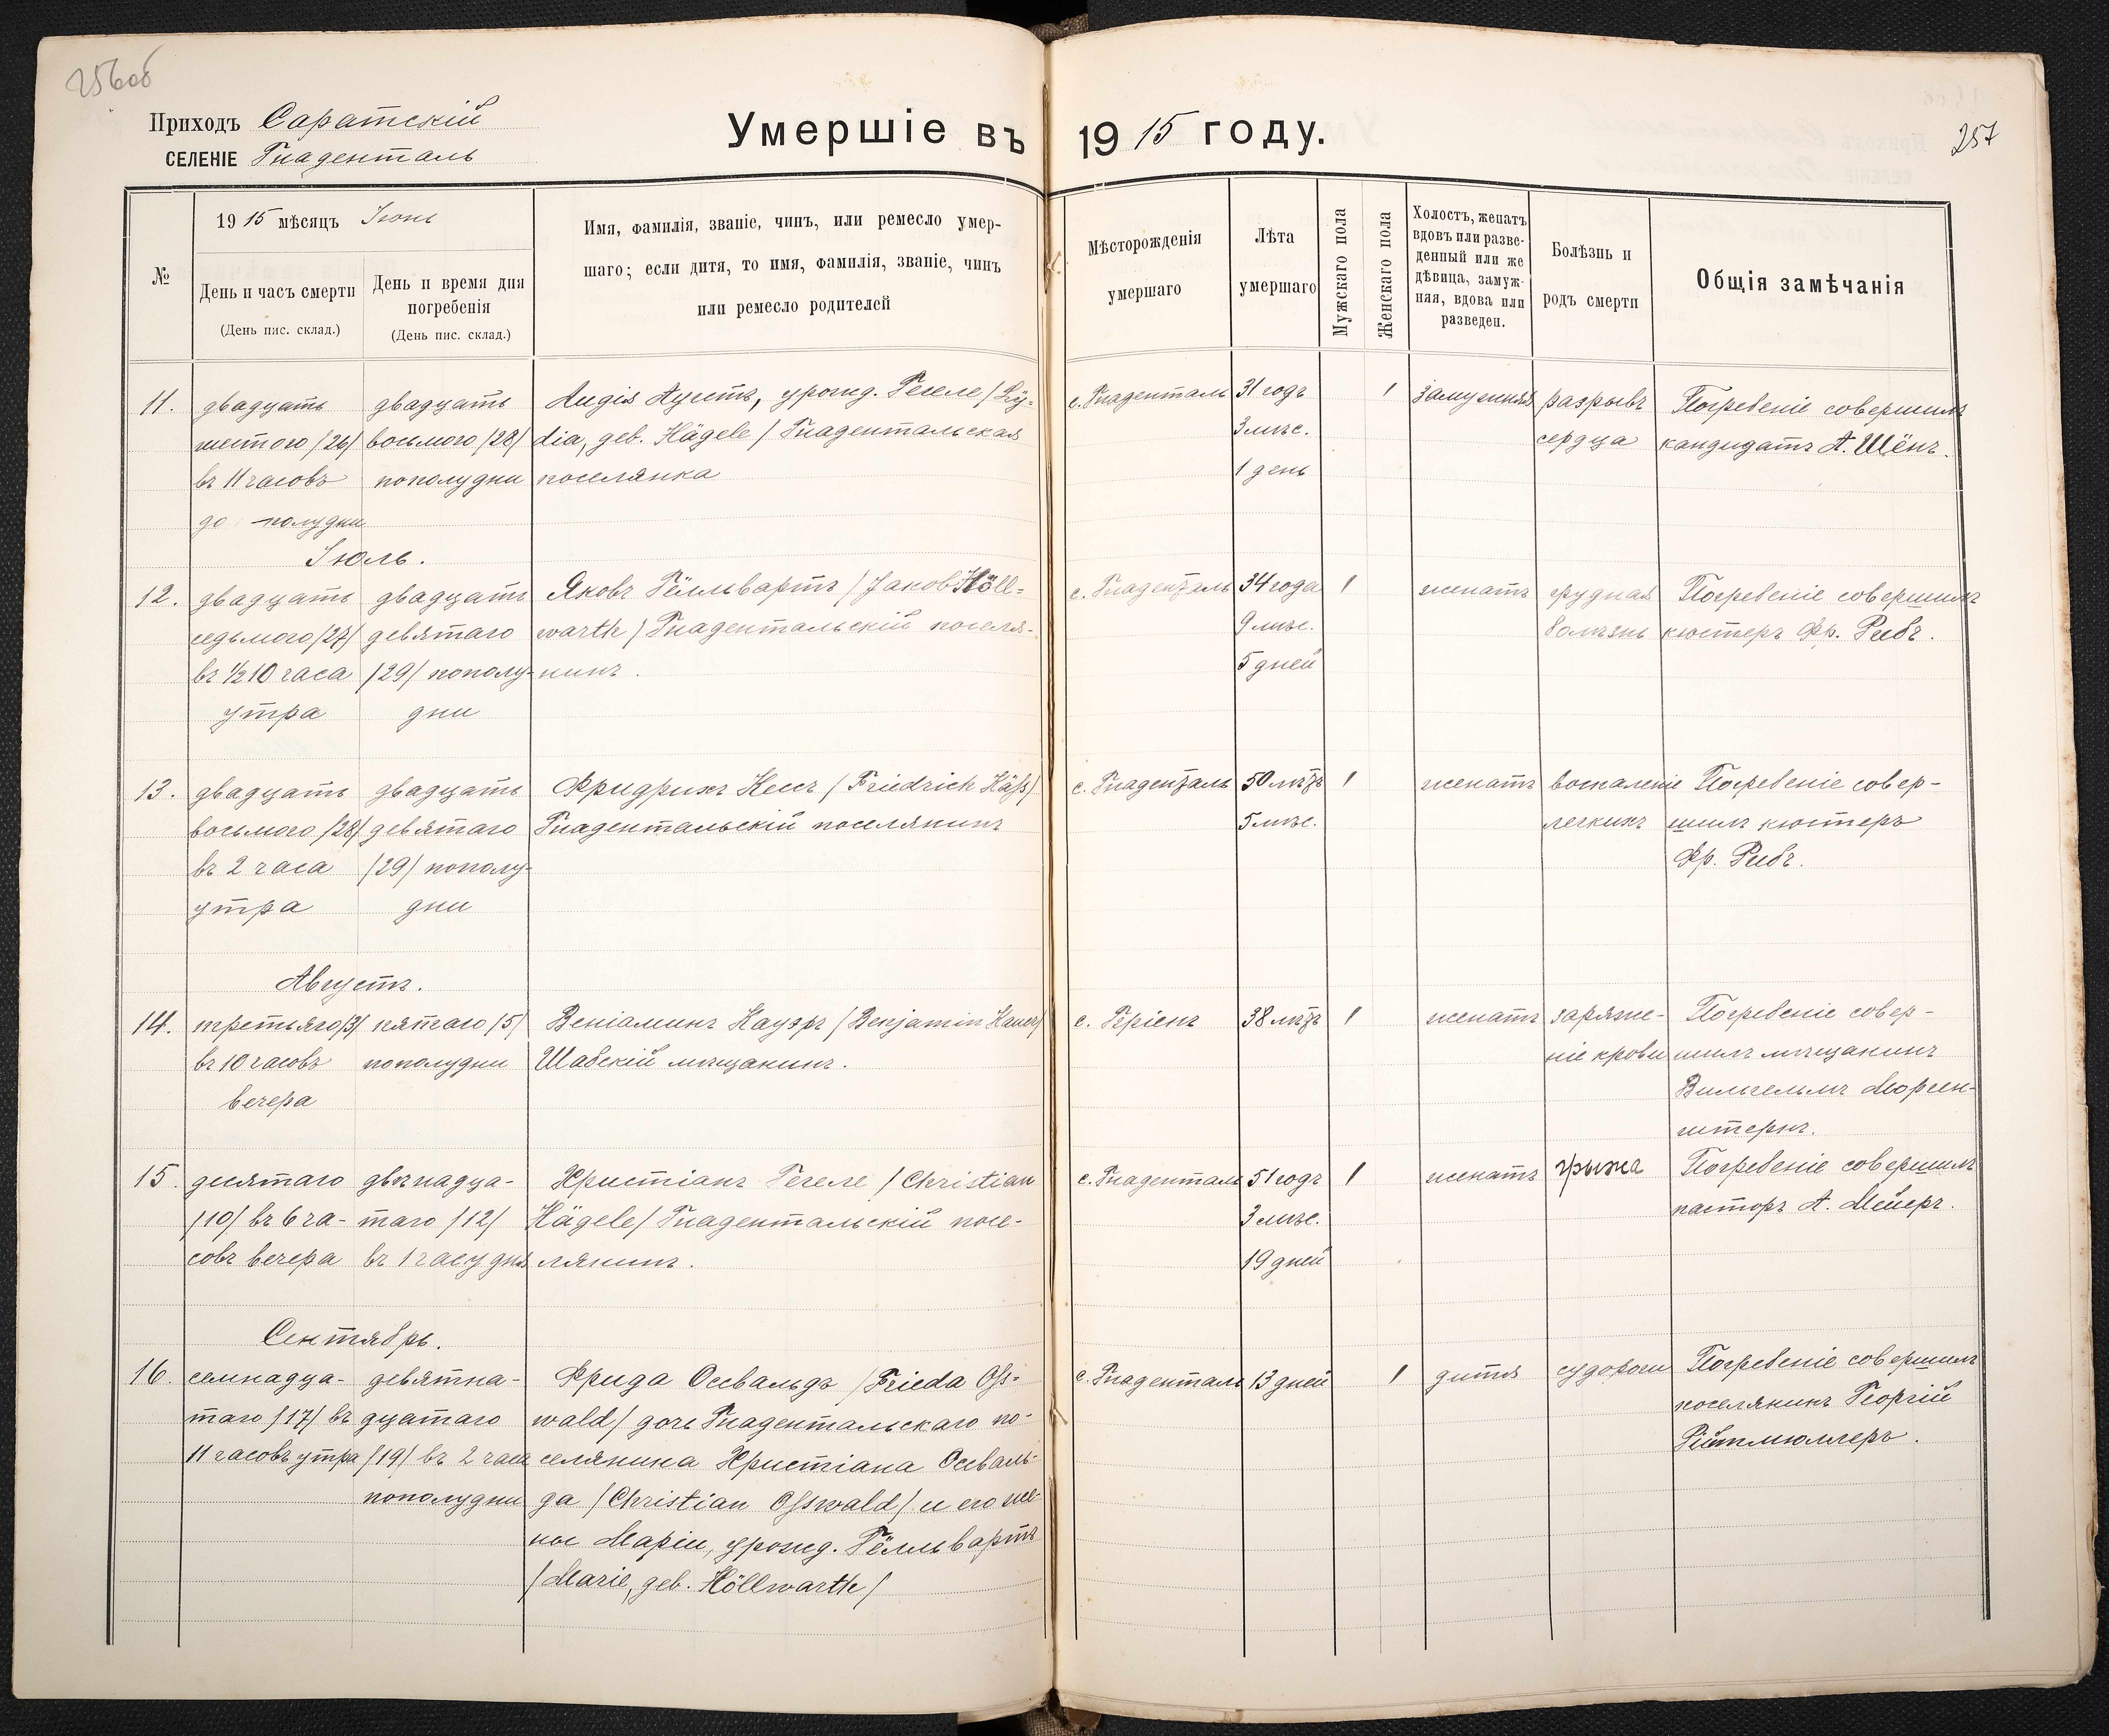 256об
Приходъ Саратскій
СЕЛЕНІЕ Гнаденталь
Умершіе въ 1915 году.
257
№
1915 мѣсяцъ Іюнь
День и часъ смерти
(День пис. склад.)
День и время дня
погребенія
(День пис. склад.)
Имя, фамилія, званіе, чинъ, или ремесло умер-
шаго; если дитя, то имя, фамилія, званіе, чинъ
или ремесло родителей
Мѣсторожденія
умершаго
Лѣта
умершаго
Мужскаго пола
Женскаго пола
Холостъ, женатъ
вдовъ или разве-
денный или же
дѣвица, замуж-
няя, вдова или
разведен.
Болѣзнь и
родъ смерти
Общія замѣчанія
11.
двадцать
шестого /26/
въ 11 часовъ
до полудни
двадцать
восьмого /28/
пополудни
Лидія Аустъ, урожд. Гегеле / Ly-
dia, geb. Hägele / Гнадентальская
поселянка
с. Гнаденталь
31 годъ
3 мѣс.
1 день
1
замужняя
разрывъ
сердца
Погребеніе совершилъ
кандидатъ А. Шёнъ.
Іюль.
12.
двадцать
седьмого /27/
въ ½ 10 часа
утра
двадцать
девятаго
/29/ пополу-
дни
Яковъ Гёлльвартъ / Jakob Höll-
warth / Гнадентальскій поселя-
нинъ.
с. Гнаденталь
34 года
9 мѣс.
5 дней
1
женатъ
грудная
болѣзнь
Погребеніе совершилъ
кюстеръ Фр. Рибъ.
13.
двадцать
восьмого /28/
въ 2 часа
утра
двадцать
девятаго
/29/ пополу-
дни
Фридрихъ Гессъ / Friedrich Häß /
Гнадентальскій поселянинъ
с. Гнаденталь
50 лѣтъ
5 мѣс.
1
женатъ
воспаленіе
легкихъ
Погребеніе совер-
шилъ кюстеръ
Фр. Рибъ.
Августъ.
14.
третьяго /3/
въ 10 часовъ
вечера
пятаго /5/
пополудни
Веніаминъ Кауэръ / Benjamin Kauer /
Шабскій мѣщанинъ.
с.
38 лѣтъ
1
женатъ
зараже-
ніе крови
Погребеніе совер-
шилъ мѣщанинъ
Вильгельмъ Морген-
штернъ.
15.
десятаго
/10/ въ 6 ча-
совъ вечера
двѣнадца-
таго /12/
въ 1 часу дня
Христіанъ Гегеле / Christian
Hägele / Гнадентальскій посе-
лянинъ.
с. Гнаденталь
51 годъ
3 мѣс.
19 дней
1
женатъ
грыжа
Погребеніе совершилъ
пасторъ А. Мейеръ.
Сентябрь.
16.
семнадца-
таго /17/ въ
11 часовъ утра
девятна-
дцатаго
/19/ въ 2 часа
пополудни
Фрида Оссвальдъ / Frieda Oß-
wald / дочь Гнадентальскаго по-
селянина Христіана Оссваль-
да / Christian Oßwald / и его же-
ны Маріи, урожд. Гёлльвартъ
/ Marie, geb. Höllwarth /
с. Гнаденталь
13 дней
1
дитя
судороги
Погребеніе совершилъ
поселянинъ Георгій
Рейтмюллеръ.